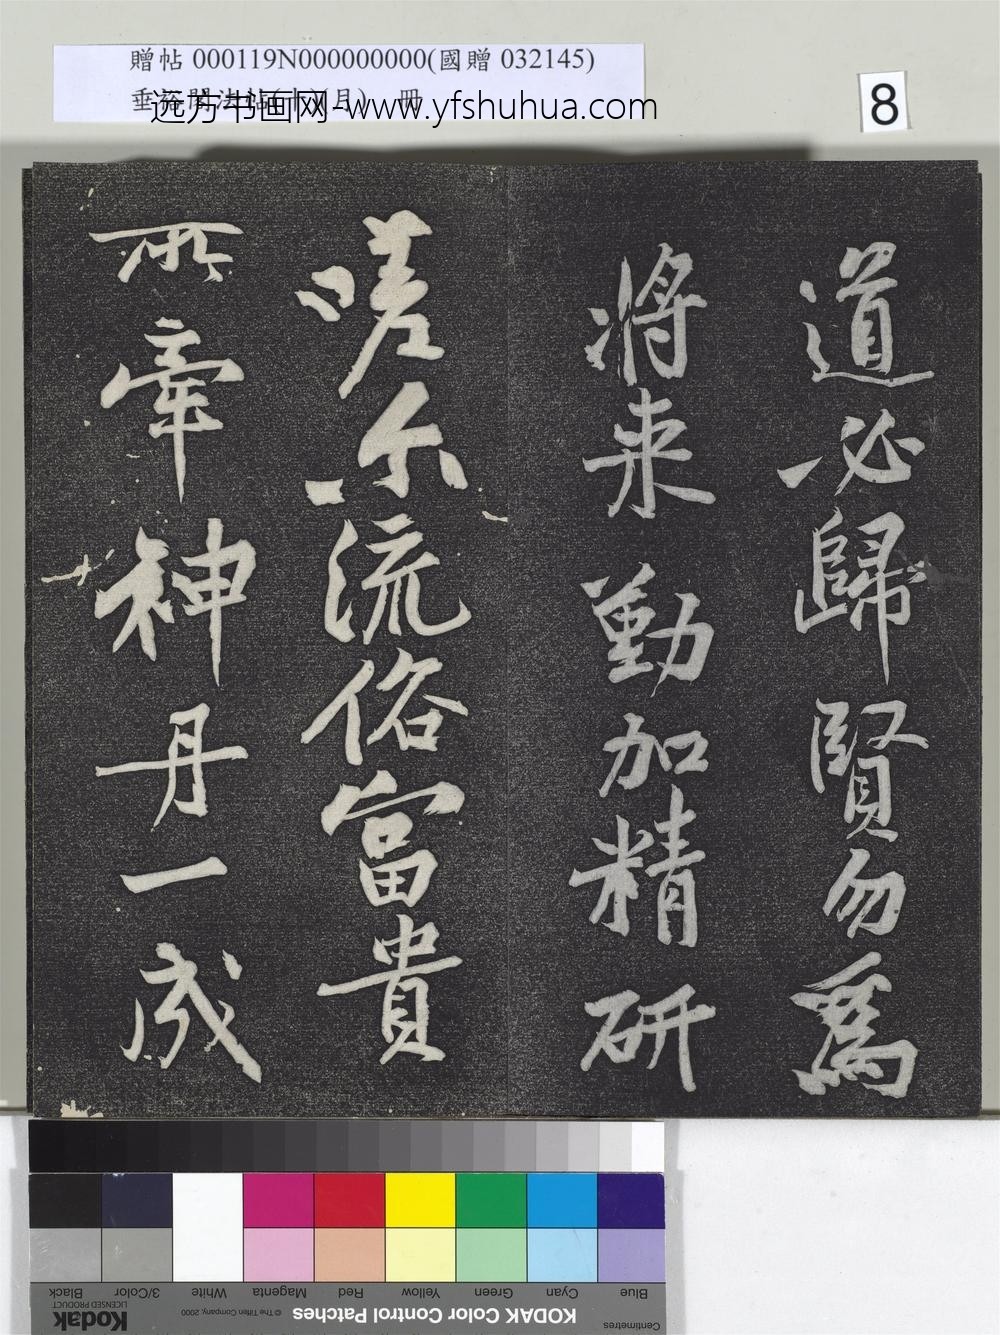 贈帖 000119N000000000(國贈 032145)
远方书画网-www.yfshuhua.com
8
道必歸賢勿爲
將来勤加精研
嗟尔流俗富貴
所牽神丹一成
Blue
Cyan
Green
Yellow
Red
Magenta
White
3/Color
Black
Centimetres
KODAK Color Control Patches
© The Tiffen Company, 2000
Kodak
LICENSED PRODUCT